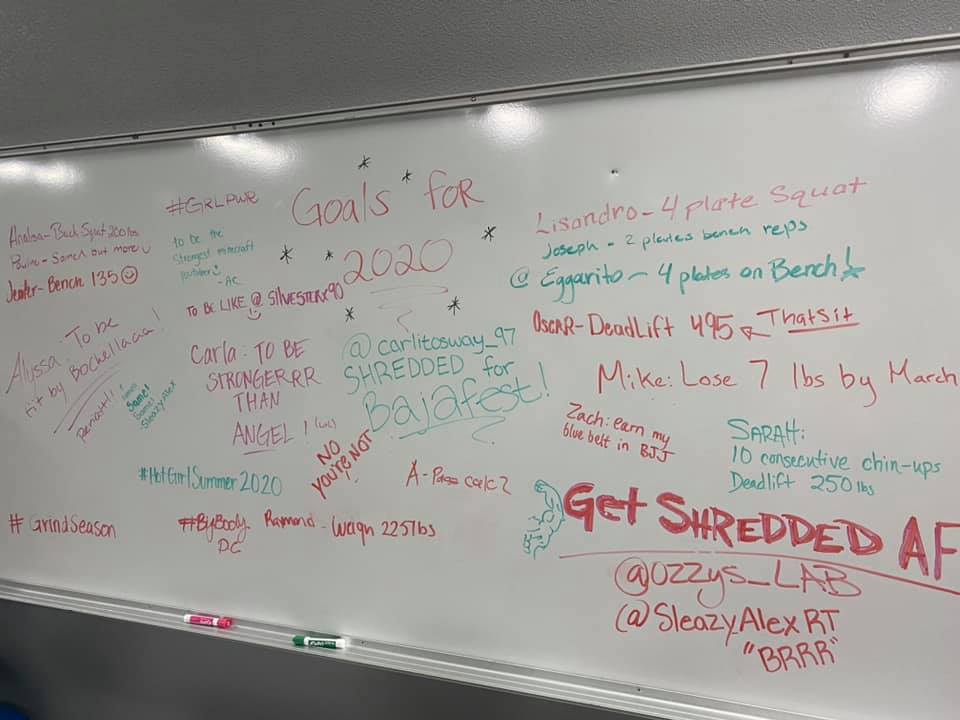 Goals for
2020
#GRLPWR
Back Squat 200 lbs
out more
Bench 135
to be the
Strongest minecraft
youtuber
-AC
TO BE LIKE @ SILVESTERX90
Alyssa: To be
fit by Bachellaaaa!
Same!
Same!
SleazyAlex
Carla: TO BE
STRONGERRR
THAN
ANGEL! (lol)
NO
YOU'RE NOT
@carlitosway_97
SHREDDED for
Bajafest!
#HotGirlSummer2020
A-Pass calc 2
#GrindSeason
#ByBody
DC
Ramond - Weigh 225 lbs
Lisandro - 4 plate Squat
Joseph - 2 plates bench reps
@ Eggarito - 4 plates on Bench!
OscAR - DeadLift 495
Thatsit
Mike: Lose 7 lbs by March
Zach: earn my
blue belt in BJJ
SARAH:
10 consecutive chin-ups
Deadlift 250 lbs
Get SHREDDED AF
@OZZYS_LAB
@SleazyAlexRT
"BRRR"